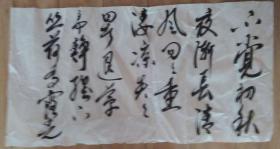 不觉初秋
夜渐长清
风习习重
凄凉炎炎
暑退茅
斋静阶下
丛莎有露光